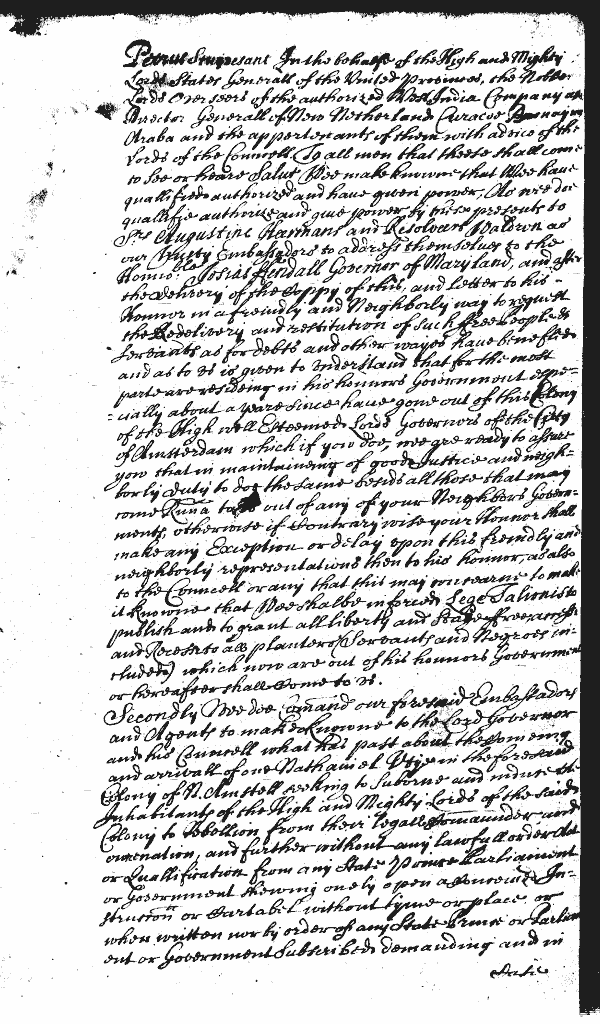 Petrus Stuyvesant In the behalfe of the High and Mighty
Lords States Generall of the United Provinces, the Noble
Lords Overseers of the authorized West India Company as
Director Generall of New Netherland Curacoe Bonayro
Aruba and the appertenants of them with advice of the
Lords of the Councell. To all men that theese shall come
to see or heare Salut Wee make knowne that Wee have
quallified authorized and have given power, As wee doe
quallifie authorize and give power by these presents to
Srs Augustine Harmans and Resolvert Waldron as
our Trusty Embassadors to address themselves to the
Honoble Josias Fendall Governor of Maryland, and after
the delivery of the Coppy of this, and Letter to his
Honnor in a freindly and Neighborly way to request
the Redelivery and restitution of such free people and
Servants as for debts and other wayes have beene fled
and as to us is given to understand that for the most
parte are resideing in his honnors Government espe=
=cially about a yeare since have gone out of this Colony
of the High well Esteemed Lords Governors of the City
of Amsterdam which if yow doe, wee are ready to assure
yow that in maintaineing of good Justice and neigh=
borly duty to doe the same besids all those that may
come Runa to us out of any of your Neighbors Govern=
ments, otherwise if Contrary wise your Honnor shall
make any Exception or delay upon this freindly and
neighborly representations then to his honnor, as also
to the Councell or any that this may concearne to make
it knowne that Wee shalbe inforced Lege Talionis to
publish and to grant all liberty and
and Recesse to all planters Servants and Negroes in=
cluded) which now are out of his honnors Government
or hereafter shall come to us.
Secondly Wee doe Comand our foresaid Embassadors
and Agents to make knowne to the Lord Governor
and his Councell what has past about the Comeing
and arrivall of one Nathaniel Utye in the foresaid
Colony of N. Amstell seeking to Suborne and induce the
Inhabitants of the High and Mighty Lords of the said
Colony to Rebellion from their legall
and further without any lawfull order Act
or Quallification from any State Prince Parliament
or Government shewing onely open a Conceived In=
struction or Cartabel without tyme or place, or
when written nor by order of any State Prince or Parliam
ent or Government Subscribed; demanding and in